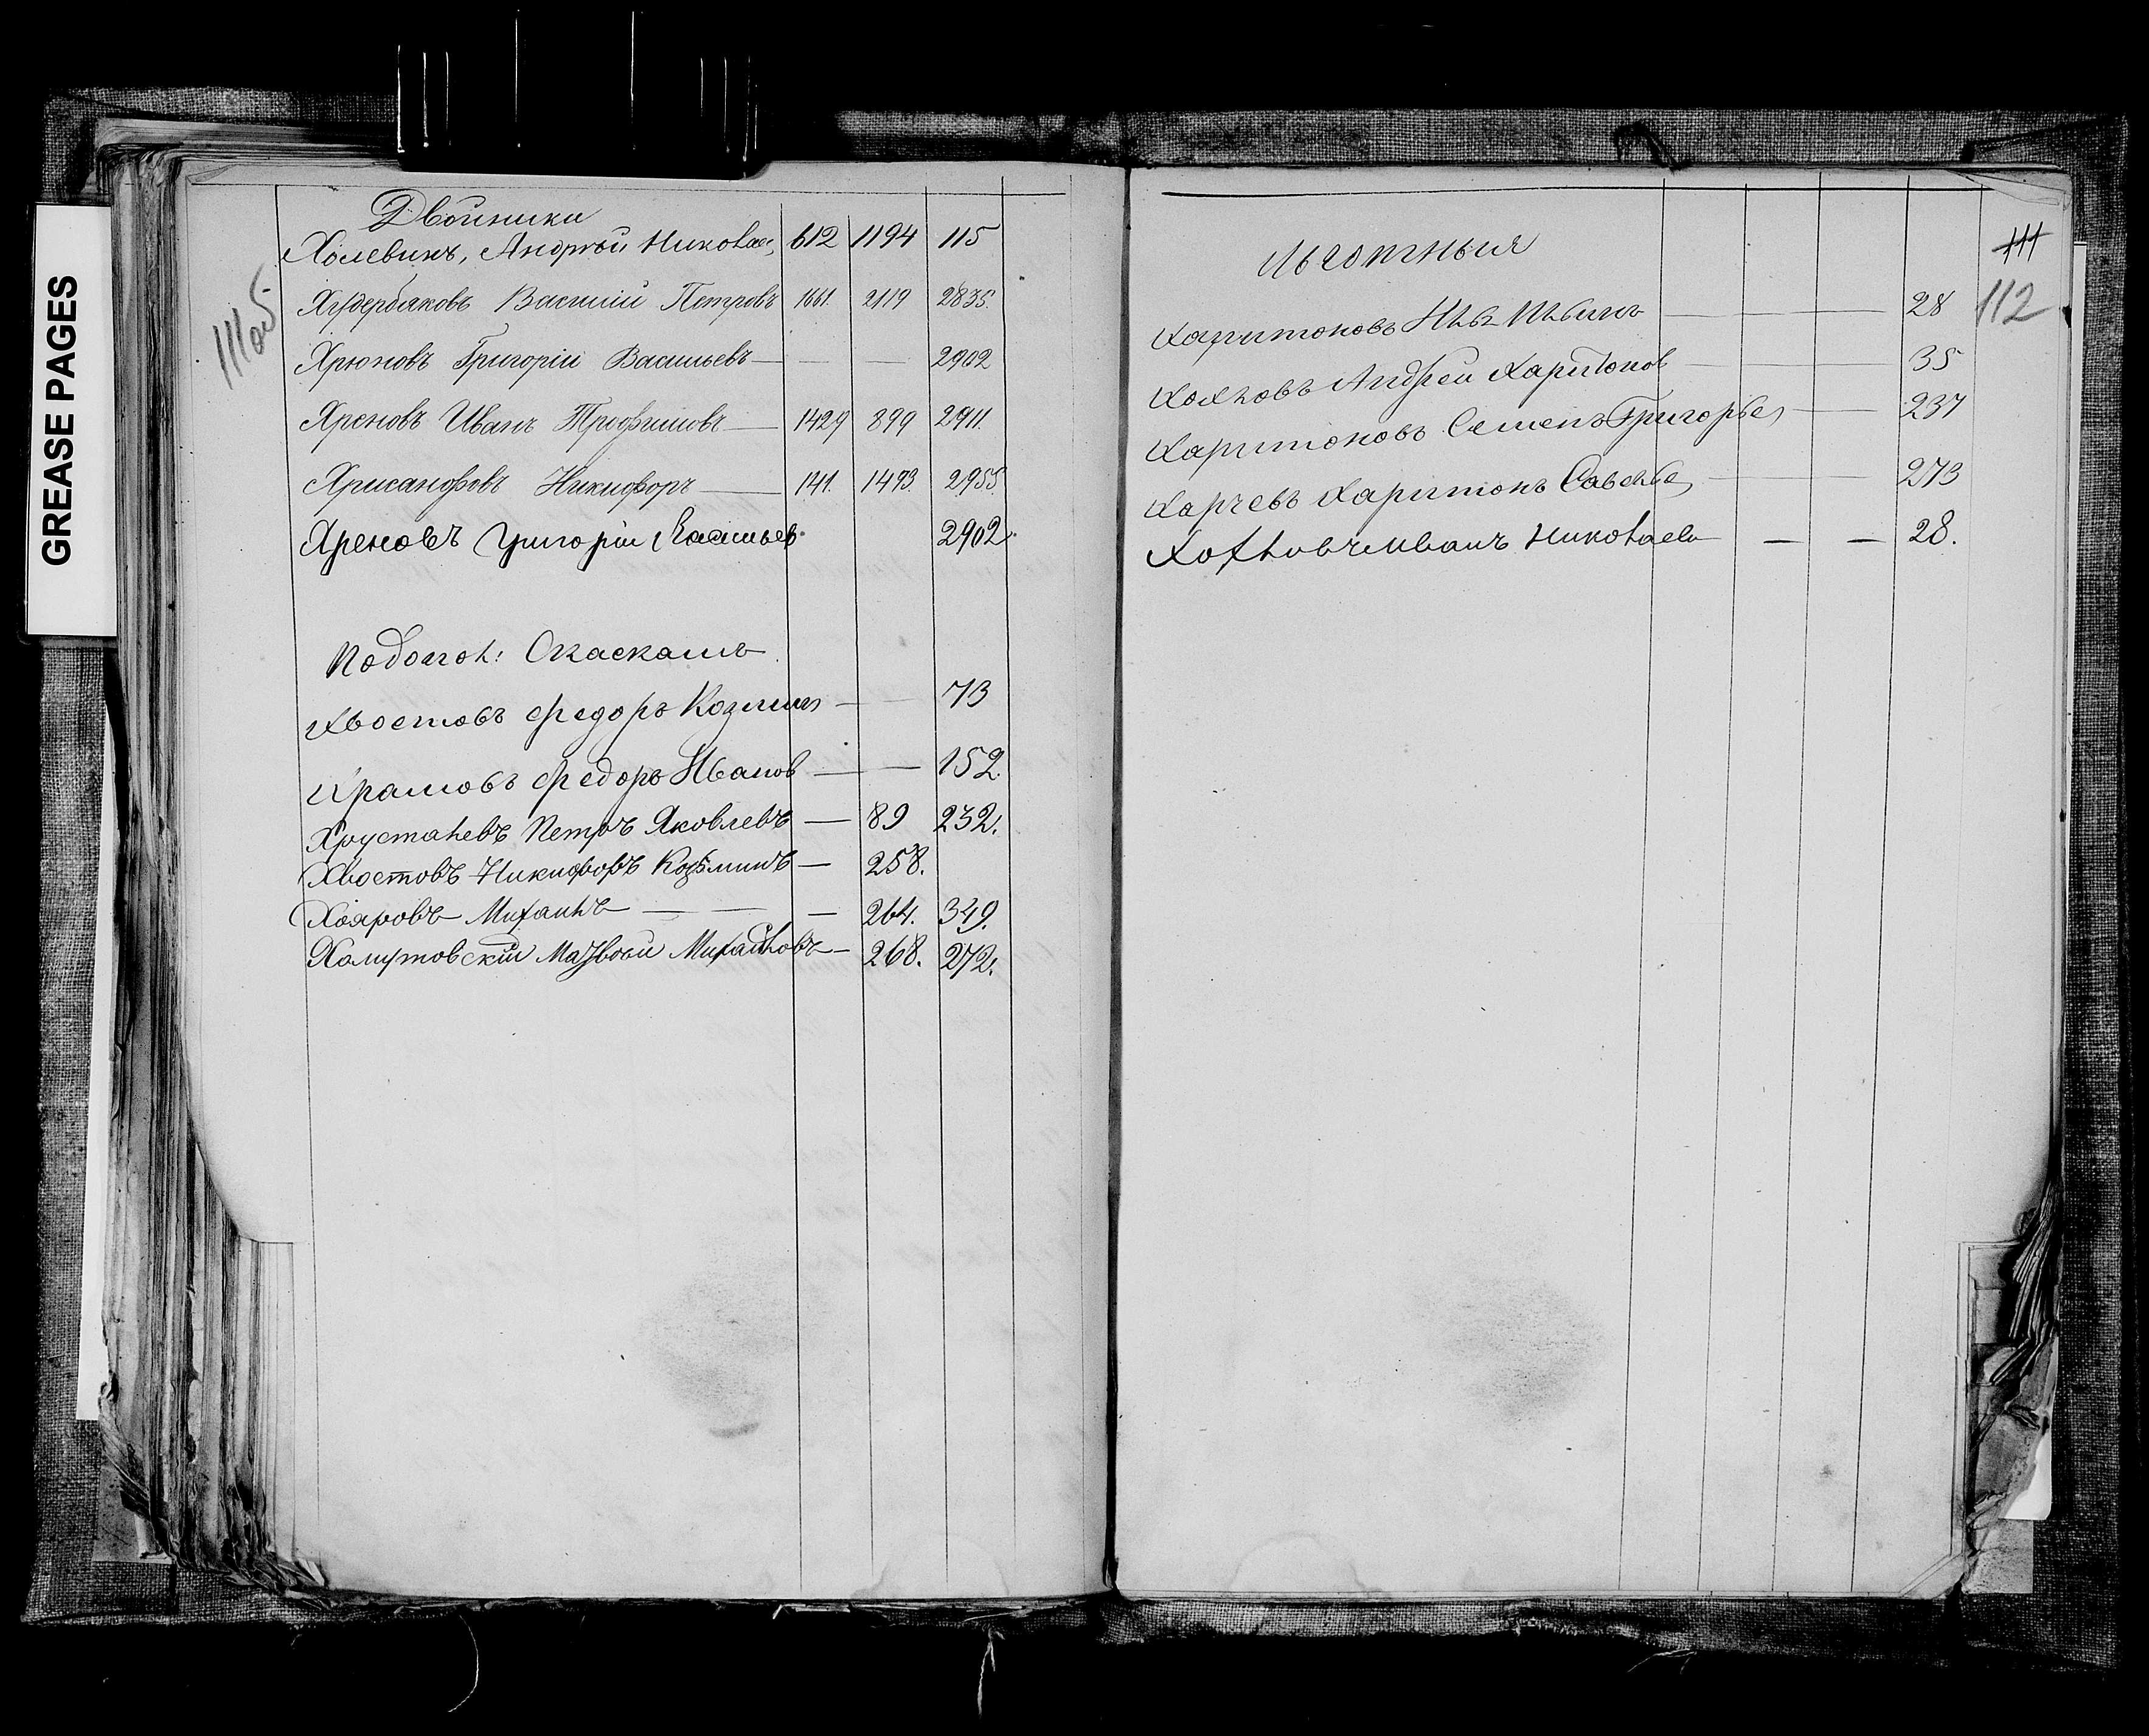 GREASE PAGES
111 об
Двойники
Холевинъ, Андрей Николаев 612 1194 115
Худербяковъ Василий Петровъ 1661. 2119 2835.
Хрюновъ Григорій Васильевъ — — — 2902
Хреновъ Иванъ Трофимовъ — 1429 899 2911.
Хрисанфовъ Никифоръ — 141. 1473. 2955.
Хреновъ Григорій Васильев. 2902.
Скаскамъ
Хвостовъ Федоръ Козмин — — 73
Храмовъ Федоръ Иванов — — 152.
Хрусталевъ Петръ Яковлевъ — 89 232.
Хвостовъ Никифоръ Козьминъ — 258.
Хояровъ Михаилъ — — — 264. 349.
Михайловъ — 268. 272.
111
112
Льготныя
Харитоновъ — 28
Андрей Харитонов — 35
Харитоновъ Семенъ Григорьев — 237
Харчевъ Харитонъ Савельев — 273
Иванъ Николаевъ — — 28.